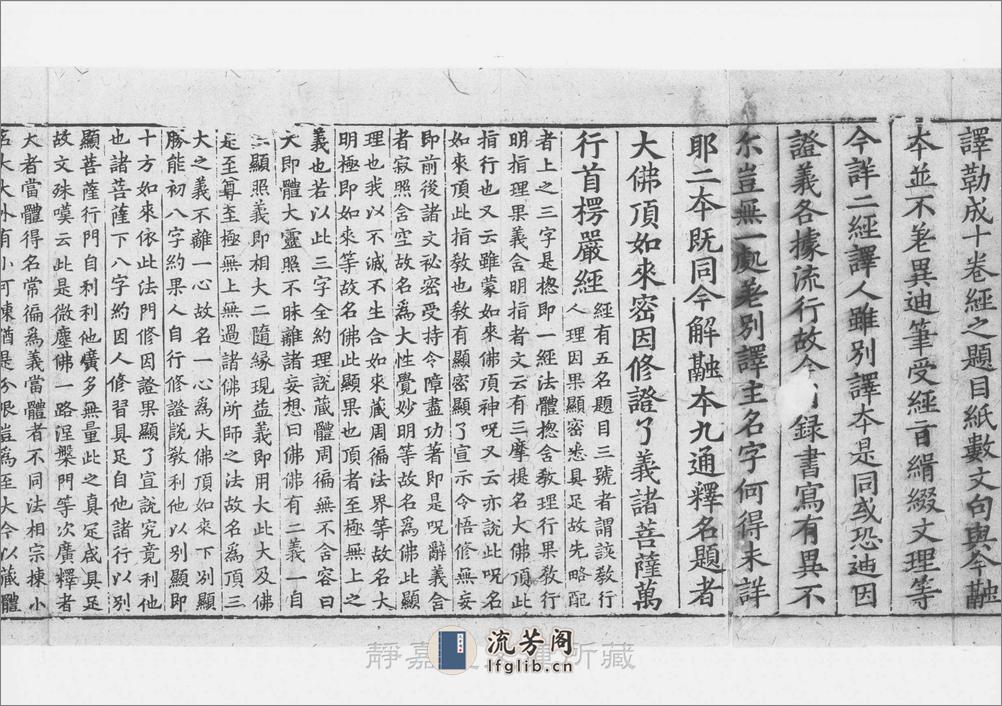 譯勒成十卷經之題目紙數文句與今融
本並不差異迪筆受經音緝綴文理等
今詳二經譯人雖別譯本是同或恐迪因
證義各據流行故今録書寫有異不
尓豈無一處差別譯主名字何得未詳
耶二本既同今解融本九通釋名題者
大佛頂如來密因修證了義諸菩薩萬
行首楞嚴經
經有五名題目三號者謂該敎行
人理因果顯密悉具足故先略配
者上之三字是揔即一經法體揔含敎理行果敎行
明指理果義含明指者文云有三摩提名大佛頂此
指行也又云雖蒙如來佛頂神呪又云亦說此呪名
如來頂此指敎也敎有顯密顯了宣示令悟修無妄
即前後諸文祕密受持令障盡功著即是呪辭義含
者寂照含空故名爲大性覺妙明等故名爲佛此顯
理也我以不滅不生合如來藏周徧法界等故名大
明極即如來等故名佛此顯果也頂者至極無上之
義也若以此三字全約理說藏體周徧無不含容曰
大即體大靈照不昧離諸妄想曰佛佛有二義一自
顯照義即相大二隨緣現益義即用大此大及佛
是至尊至極無上無過諸佛所師之法故名爲頂三
大之義不離一心故名一心爲大佛頂如來下別顯
勝能初八字約果人自行修證說敎利他以別顯即
十方如來依此法門修因證果顯了宣說究竟利他
也諸菩薩下八字約因人修習具足自他諸行以別
顯菩薩行門自利利他廣多無量此之真足咸具足
故文殊嘆云此是微塵佛一路涅槃門等次廣釋者
大者當體得名常徧爲義當體者不同法相宗揀小
名大大外有小可揀猶是分限豈爲至大今以藏體
靜嘉所藏
流芳阁
lfglib.cn